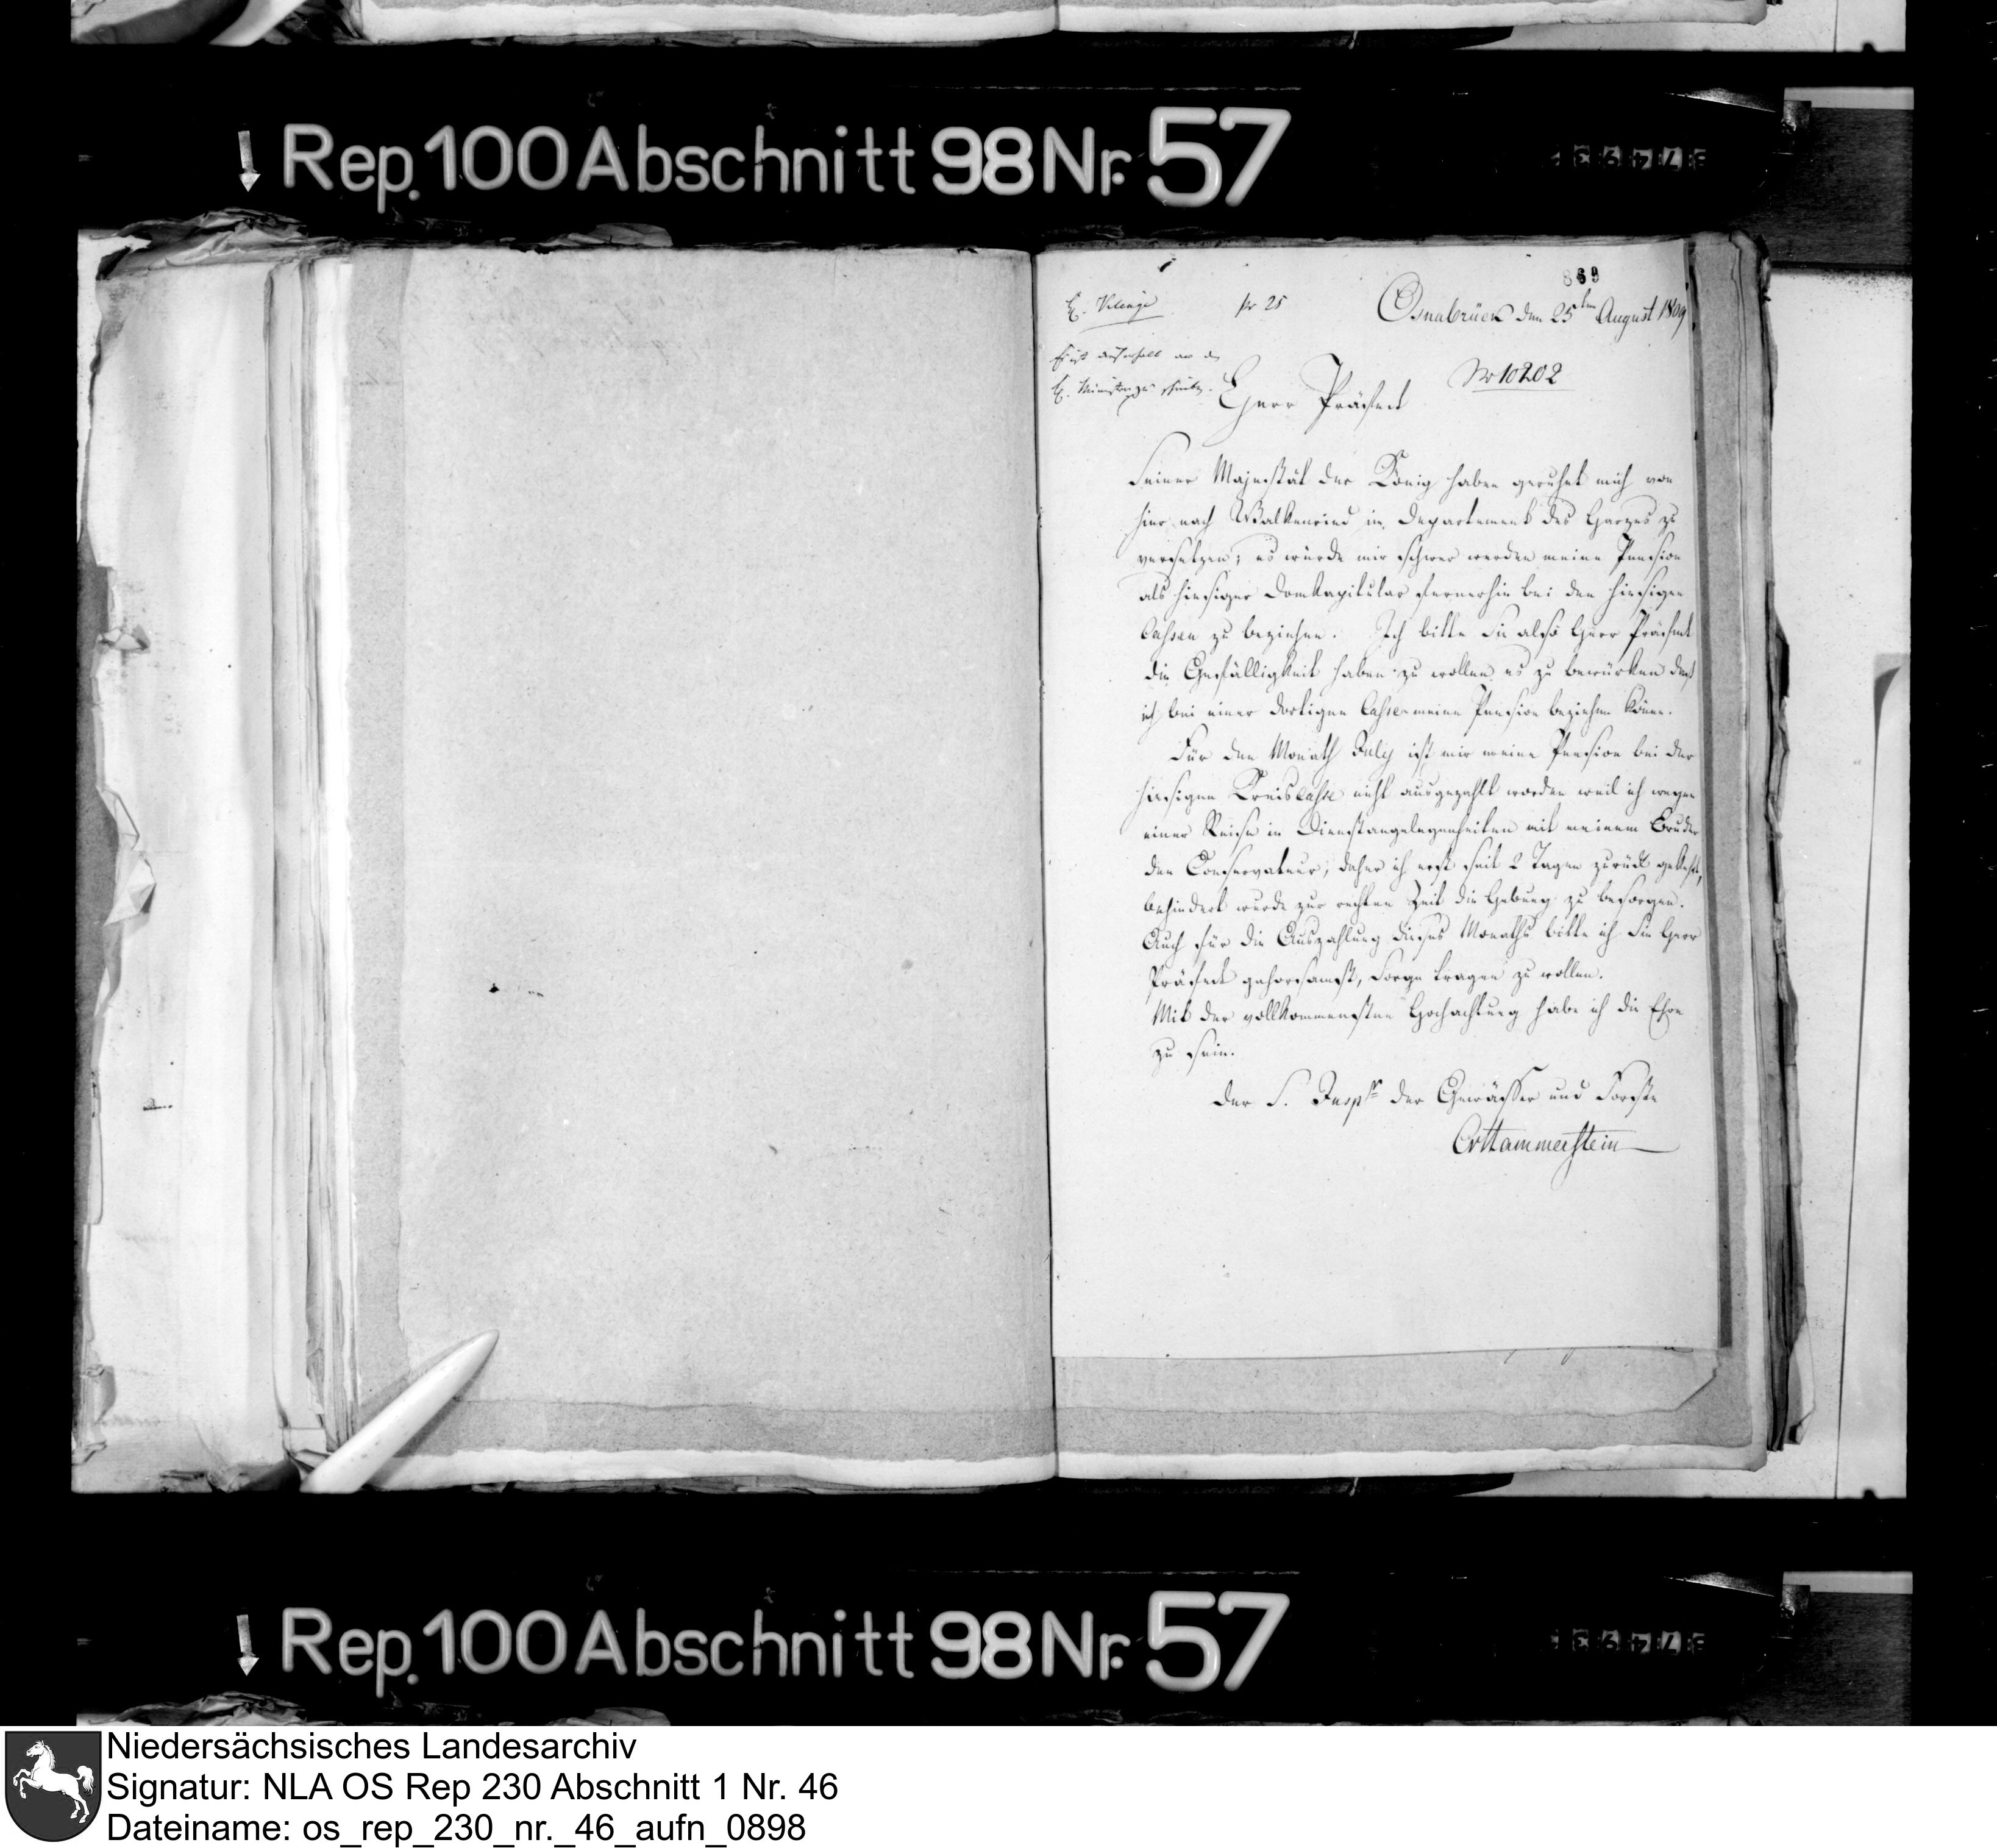 Rep. 100 Abschnitt 98 Nr. 57
869
pr 25
Osnabrück den 25ten August 1809
No 10202
Herr Präfect
Seiner Majestät der König haben geruhet mich von
hier nach Walkenried im Departement des Harzes zu
versetzen; es würde mir schwer werden meine Pension
als hiesiger Domkapitular fernerhin bei den hiesigen
Cassen zu beziehen. Ich bitte Sie also Herr Präfect
die Gefälligkeit haben zu wollen es zu bewürken daß
ich bei einer dortigen Casse meine Pension beziehen könne.
Für den Monath July ist mir meine Pension bei der
hiesigen Kreiscasse nicht ausgezahlt worden weil ich wegen
einer Reise in Dienstangelegenheiten mit meinem Bruder
den Conservateur, daher ich erst seit 2 Tagen zurück gekehrt,
behindert wurde zur rechten Zeit die Hebung zu besorgen.
Auch für die Auszahlung dieses Monaths bitte ich Sie Herr
Präfect gehorsamst, Sorge tragen zu wollen.
Mit der vollkommensten Hochachtung habe ich die Ehre
zu sein.
der S. Inspr der Gewässer und Forste
CvHammerstein
Rep. 100 Abschnitt 98 Nr. 57
Niedersächsisches Landesarchiv
Signatur: NLA OS Rep 230 Abschnitt 1 Nr. 46
Dateiname: os_rep_230_nr._46_aufn_0898